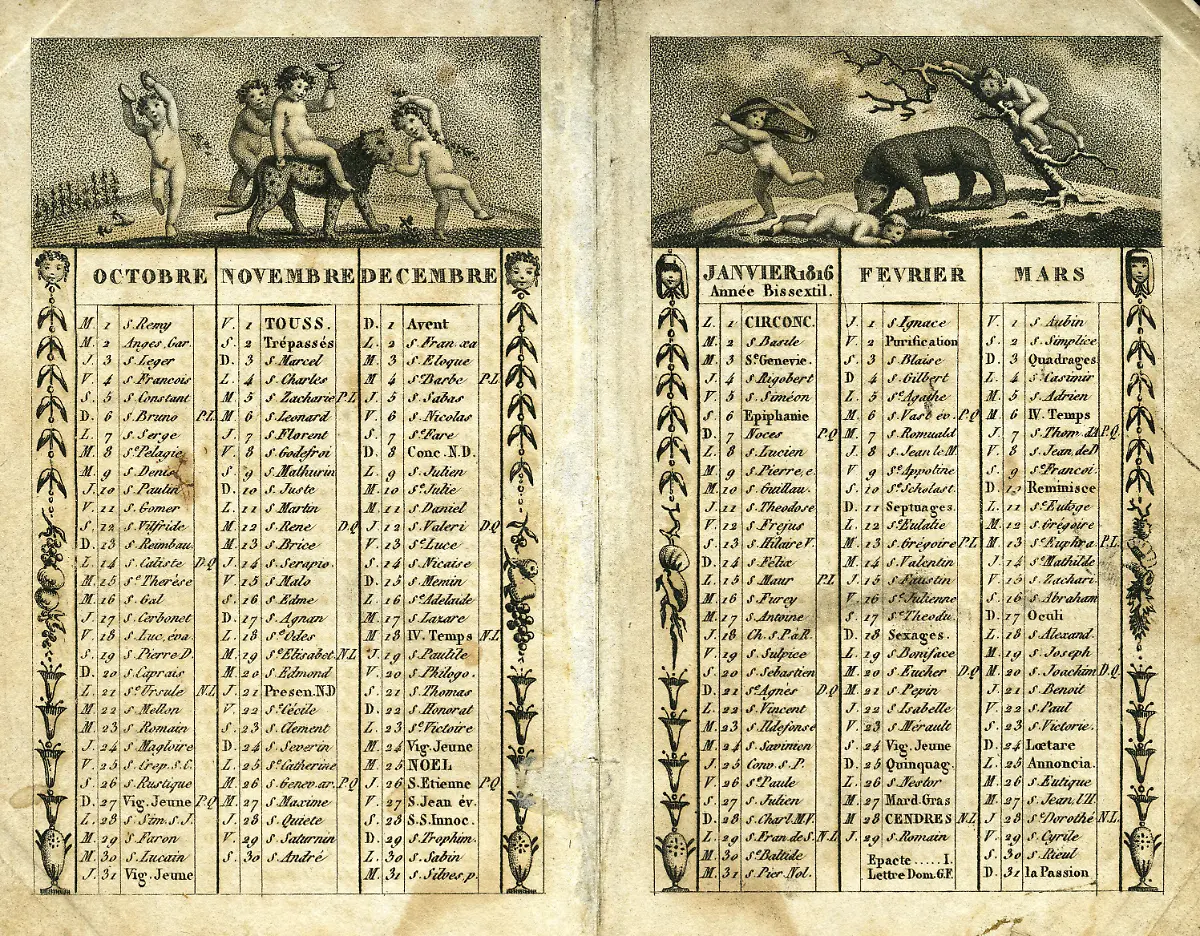 OCTOBRE
M. 1 s. Remy
M. 2 Anges. Gar.
J. 3 s. Leger
V. 4 s. Francois
S. 5 s. Constant
D. 6 s. Bruno P.L.
L. 7 s. Serge
M. 8 se. Pelagie
M. 9 s. Denis
J. 10 s. Paulin
V. 11 s. Gomer
S. 12 s. Vilfride
D. 13 s. Reimbau
L. 14 s. Caliste D.Q
M. 15 se. Therèse
M. 16 s. Gal
J. 17 s. Cerbonet
V. 18 s. Luc. éva.
S. 19 s. Pierre D.
D. 20 s. Caprais
L. 21 se. Ursule N.L
M. 22 s. Mellon
M. 23 s. Romain
J. 24 s. Magloire
V. 25 s. Crep. s.C.
S. 26 s. Rustique
D. 27 Vig. Jeune P.Q
L. 28 s. Sim. s.J.
M. 29 s. Faron
M. 30 s. Lucain
J. 31 Vig. Jeune
NOVEMBRE
V. 1 TOUSS.
S. 2 Trépassés
D. 3 s. Marcel
L. 4 s. Charles
M. 5 s. Zacharie P.L
M. 6 s. Leonard
J. 7 s. Florent
V. 8 s. Godefroi
S. 9 s. Mathurin
D. 10 s. Juste
L. 11 s. Martin
M. 12 s. Rene D.Q
M. 13 s. Brice
J. 14 s. Serapio.
V. 15 s. Malo
S. 16 s. Edme
D. 17 s. Agnan
L. 18 se. Odes
M. 19 se. Elisabet. N.L
M. 20 s. Edmond
J. 21 Presen. N.D
V. 22 se. Cécile
S. 23 s. Clement
D. 24 s. Severin
L. 25 se. Catherine
M. 26 s. Genev. ar. P.Q
M. 27 s. Maxime
J. 28 s. Quiete
V. 29 s. Saturnin
S. 30 s. André
DECEMBRE
D. 1 Avent
L. 2 s. Fran. xa
M. 3 s. Eloque
M 4 se. Barbe P.L
J. 5 s. Sabas
V. 6 s. Nicolas
S. 7 se. Fare
D. 8 Conc. N.D.
L. 9 s. Julien
M. 10 se. Julie
M. 11 s. Daniel
J. 12 s. Valeri D.Q
V. 13 se. Luce
S. 14 s. Nicaise
D. 15 s. Memin
L. 16 se. Adelaide
M. 17 s. Lazare
M 18 IV. Temps N.L
J. 19 s. Paulile
V. 20 s. Philogo.
S. 21 s. Thomas
D. 22 s. Honorat
L. 23 se. Victoire
M. 24 Vig. Jeune
M. 25 NOEL
J. 26 S. Etienne P.Q
V. 27 S. Jean év.
S. 28 S.S. Innoc.
D. 29 s. Trophim.
L. 30 s. Sabin
M. 31 s. Silves. p.
JANVIER 1816
Année Bissextil.
L. 1 CIRCONC.
M. 2 s. Basile
M. 3 Se. Genevie.
J. 4 s. Rigobert
V. 5 s. Siméon
S. 6 Epiphanie
D. 7 Noces P.Q
L. 8 s. Lucien
M. 9 s. Pierre. e.
M. 10 s. Guillau.
J. 11 s. Theodose
V. 12 s. Frejus
S. 13 s. Hilaire V.
D. 14 s. Félix
L. 15 s. Maur P.L
M. 16 s. Furcy
M. 17 s. Antoine
J. 18 Ch. s. P. à R.
V. 19 s. Sulpice
S. 20 s. Sebastien
D. 21 se. Agnès D.Q
L. 22 s. Vincent
M. 23 s. Ildefonse
M. 24 s. Savinien
J. 25 Conv. s. P.
V. 26 se. Paule
S. 27 s. Julien
D. 28 s. Charl. M.V.
L. 29 s. Fran. de S. N.L
M. 30 se. Baltide
M. 31 s. Pier. Nol.
FEVRIER
J. 1 s. Ignace
V. 2 Purification
S. 3 s. Blaise
D 4 s. Gilbert
L. 5 se. Agathe
M. 6 s. Vast év. P.Q
M. 7 s. Romuald
J. 8 s. Jean le M.
V 9 se. Appoline
S. 10 se. Scholast.
D. 11 Septuages.
L. 12 se. Eulalie
M. 13 s. Grégoire P.L
M. 14 s. Valentin
J. 15 s. Faustin
V. 16 se. Julienne
S. 17 se. Theodu.
D. 18 Sexages.
L. 19 s. Boniface
M. 20 s. Eucher D.Q
M. 21 s. Pepin
J. 22 s. Isabelle
V. 23 s. Mérault
S. 24 Vig. Jeune
D. 25 Quinquag.
L. 26 s. Nestor
M. 27 Mard. Gras
M 28 CENDRES N.L
J. 29 s. Romain
Epacte ..... I.
Lettre Dom. G.F.
MARS
V. 1 s. Aubin
S. 2 s. Simplice
D. 3 Quadrages.
L. 4 s. Casimir
M. 5 s. Adrien
M. 6 IV. Temps
J. 7 s. Thom. d'A P.Q.
V. 8 s. Jean. de D
S. 9 se. Francoi.
D. 10 Reminisce
L. 11 se. Euloge
M. 12 s. Grégoire
M. 13 se. Euphra. P.L.
J. 14 se. Mathilde
V. 15 s. Zachari.
S. 16 s. Abraham
D. 17 Oculi
L. 18 s. Alexand.
M. 19 s. Joseph
M. 20 s. Joachim D.Q.
J. 21 s. Benoit
V. 22 s. Paul
S. 23 s. Victorie.
D. 24 Lœtare
L. 25 Annoncia.
M. 26 s. Eutique
M. 27 s. Jean. l'H.
J. 28 se. Dorothé N.L.
V. 29 s. Cyrile
S. 30 s. Rieul
D. 31 la Passion